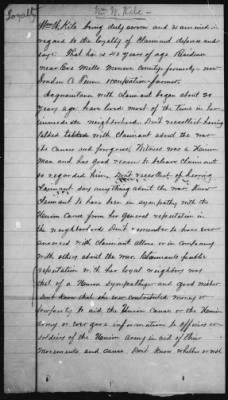 Loyalty
Wm W. Kile
Wm W. Kile being duly sworn and examined in
regard to the loyalty of Claimant deposes and
says: That he is 40 years of age Residence
near Mills Monroe county, formerly near
Tenn occupation farmer.
Acquaintance with Claimant began about 20
years ago have lived most of the time in her
immediate neighborhood. Don't recollect having
talked with claimant about the war
its causes and progress; Witness was a Union
Man and has good reason to believe claimant
so regarded him. Don't recollect of hearing
Claimant say anything about the war. Knew
Claimant to have been in sympathy with the
Union Cause from her general reputation in
the neighborhood. Don't remember to have ever
conversed with claimant alone or in company
with others about the war. Claimant's public
reputation with her loyal neighbors was
that of a Union Sympathizer and good
Don't know that she ever contributed money or
property to aid the Union Cause or the Union
Army or ever gave information to officers or
soldiers of the Union Army in aid of their
Movements and cause. Don't know whether or not